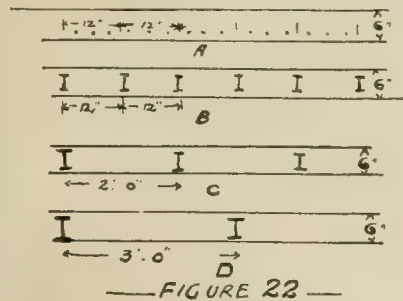 12" 12" 6"
A
I I I I I I 6"
12" 12"
B
I I I 6"
2'. 0" C
I I 6"
3'. 0"
D
FIGURE 22